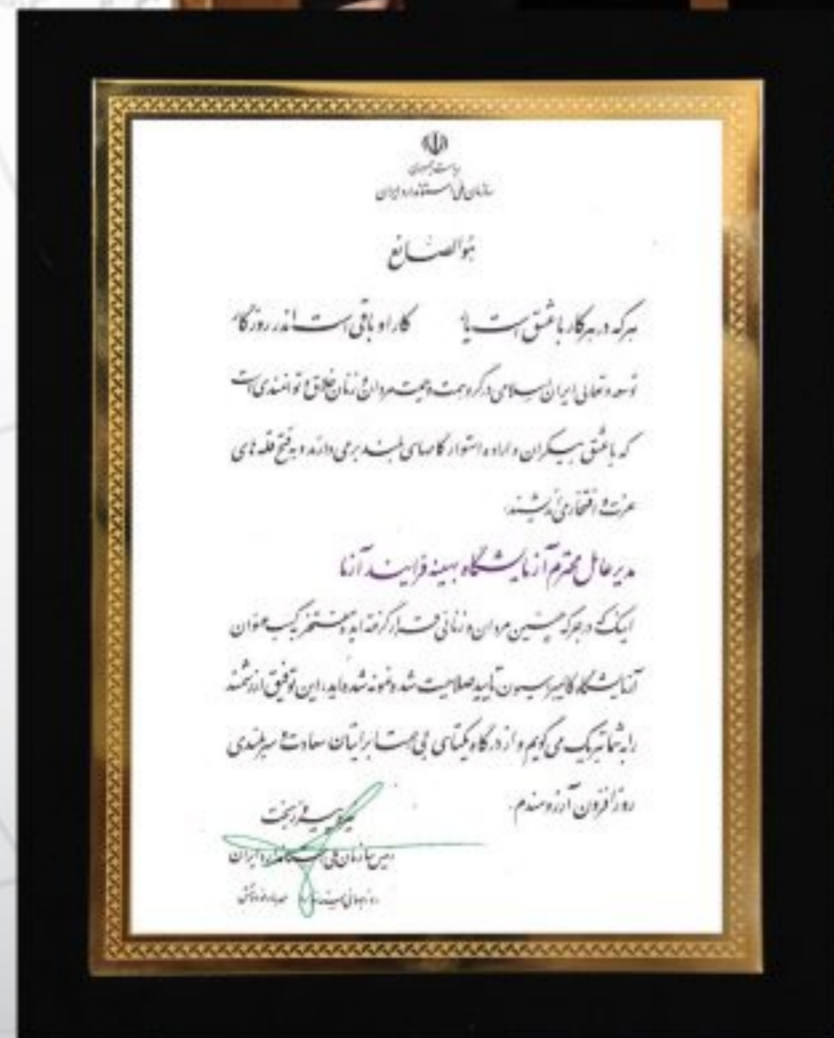 ریاست جمهوری
سازمان ملی استاندارد ایران
هوالصانع
هر که در هر کار با عشق است یار کار او باقی است اندر روزگار
توسعه و تعالی ایران اسلامی در گرو همت و حمیت مردان و زنان خلاق و توانمندی است
که با عشق بیکران و اراده استوار گامهای بلند برمی دارند و به فتح قله های
عزت و افتخار می اندیشند.
مدیر عامل محترم آزمایشگاه بهینه فرایند آزما
اینک که در جرگه چنین مردان و زنانی قرار گرفته اید و مفتخر به کسب عنوان
آزمایشگاه کالیبراسیون تایید صلاحیت شده نمونه شده اید، این توفیق ارزشمند
را به شما تبریک می گویم و از درگاه یکتای بی همتا برایتان سعادت و سربلندی
روزافزون آرزومندم.
نیره پیروزبخت
رییس سازمان ملی استاندارد ایران
روز جهانی استاندارد